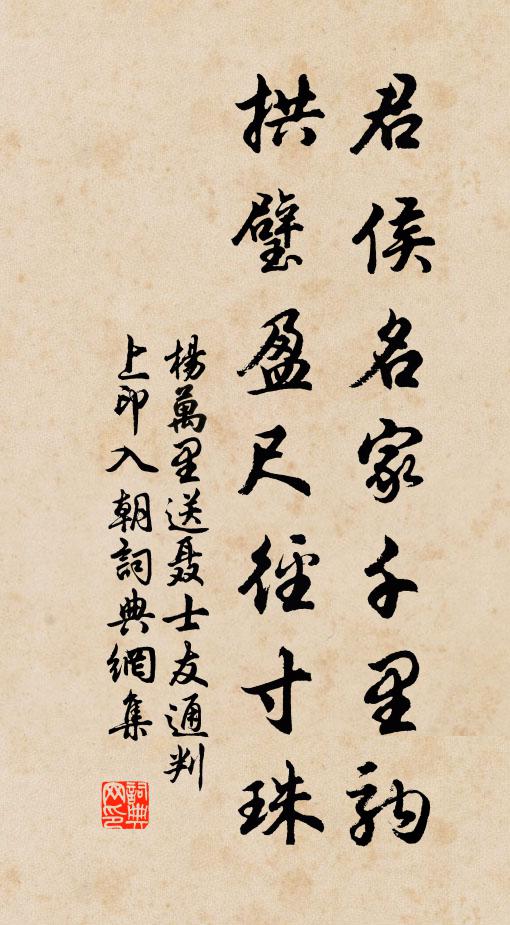 君侯名家千里駒
拱璧盈尺徑寸珠
楊萬里送聂士友通判
上印入朝詞典網集
詞典网印